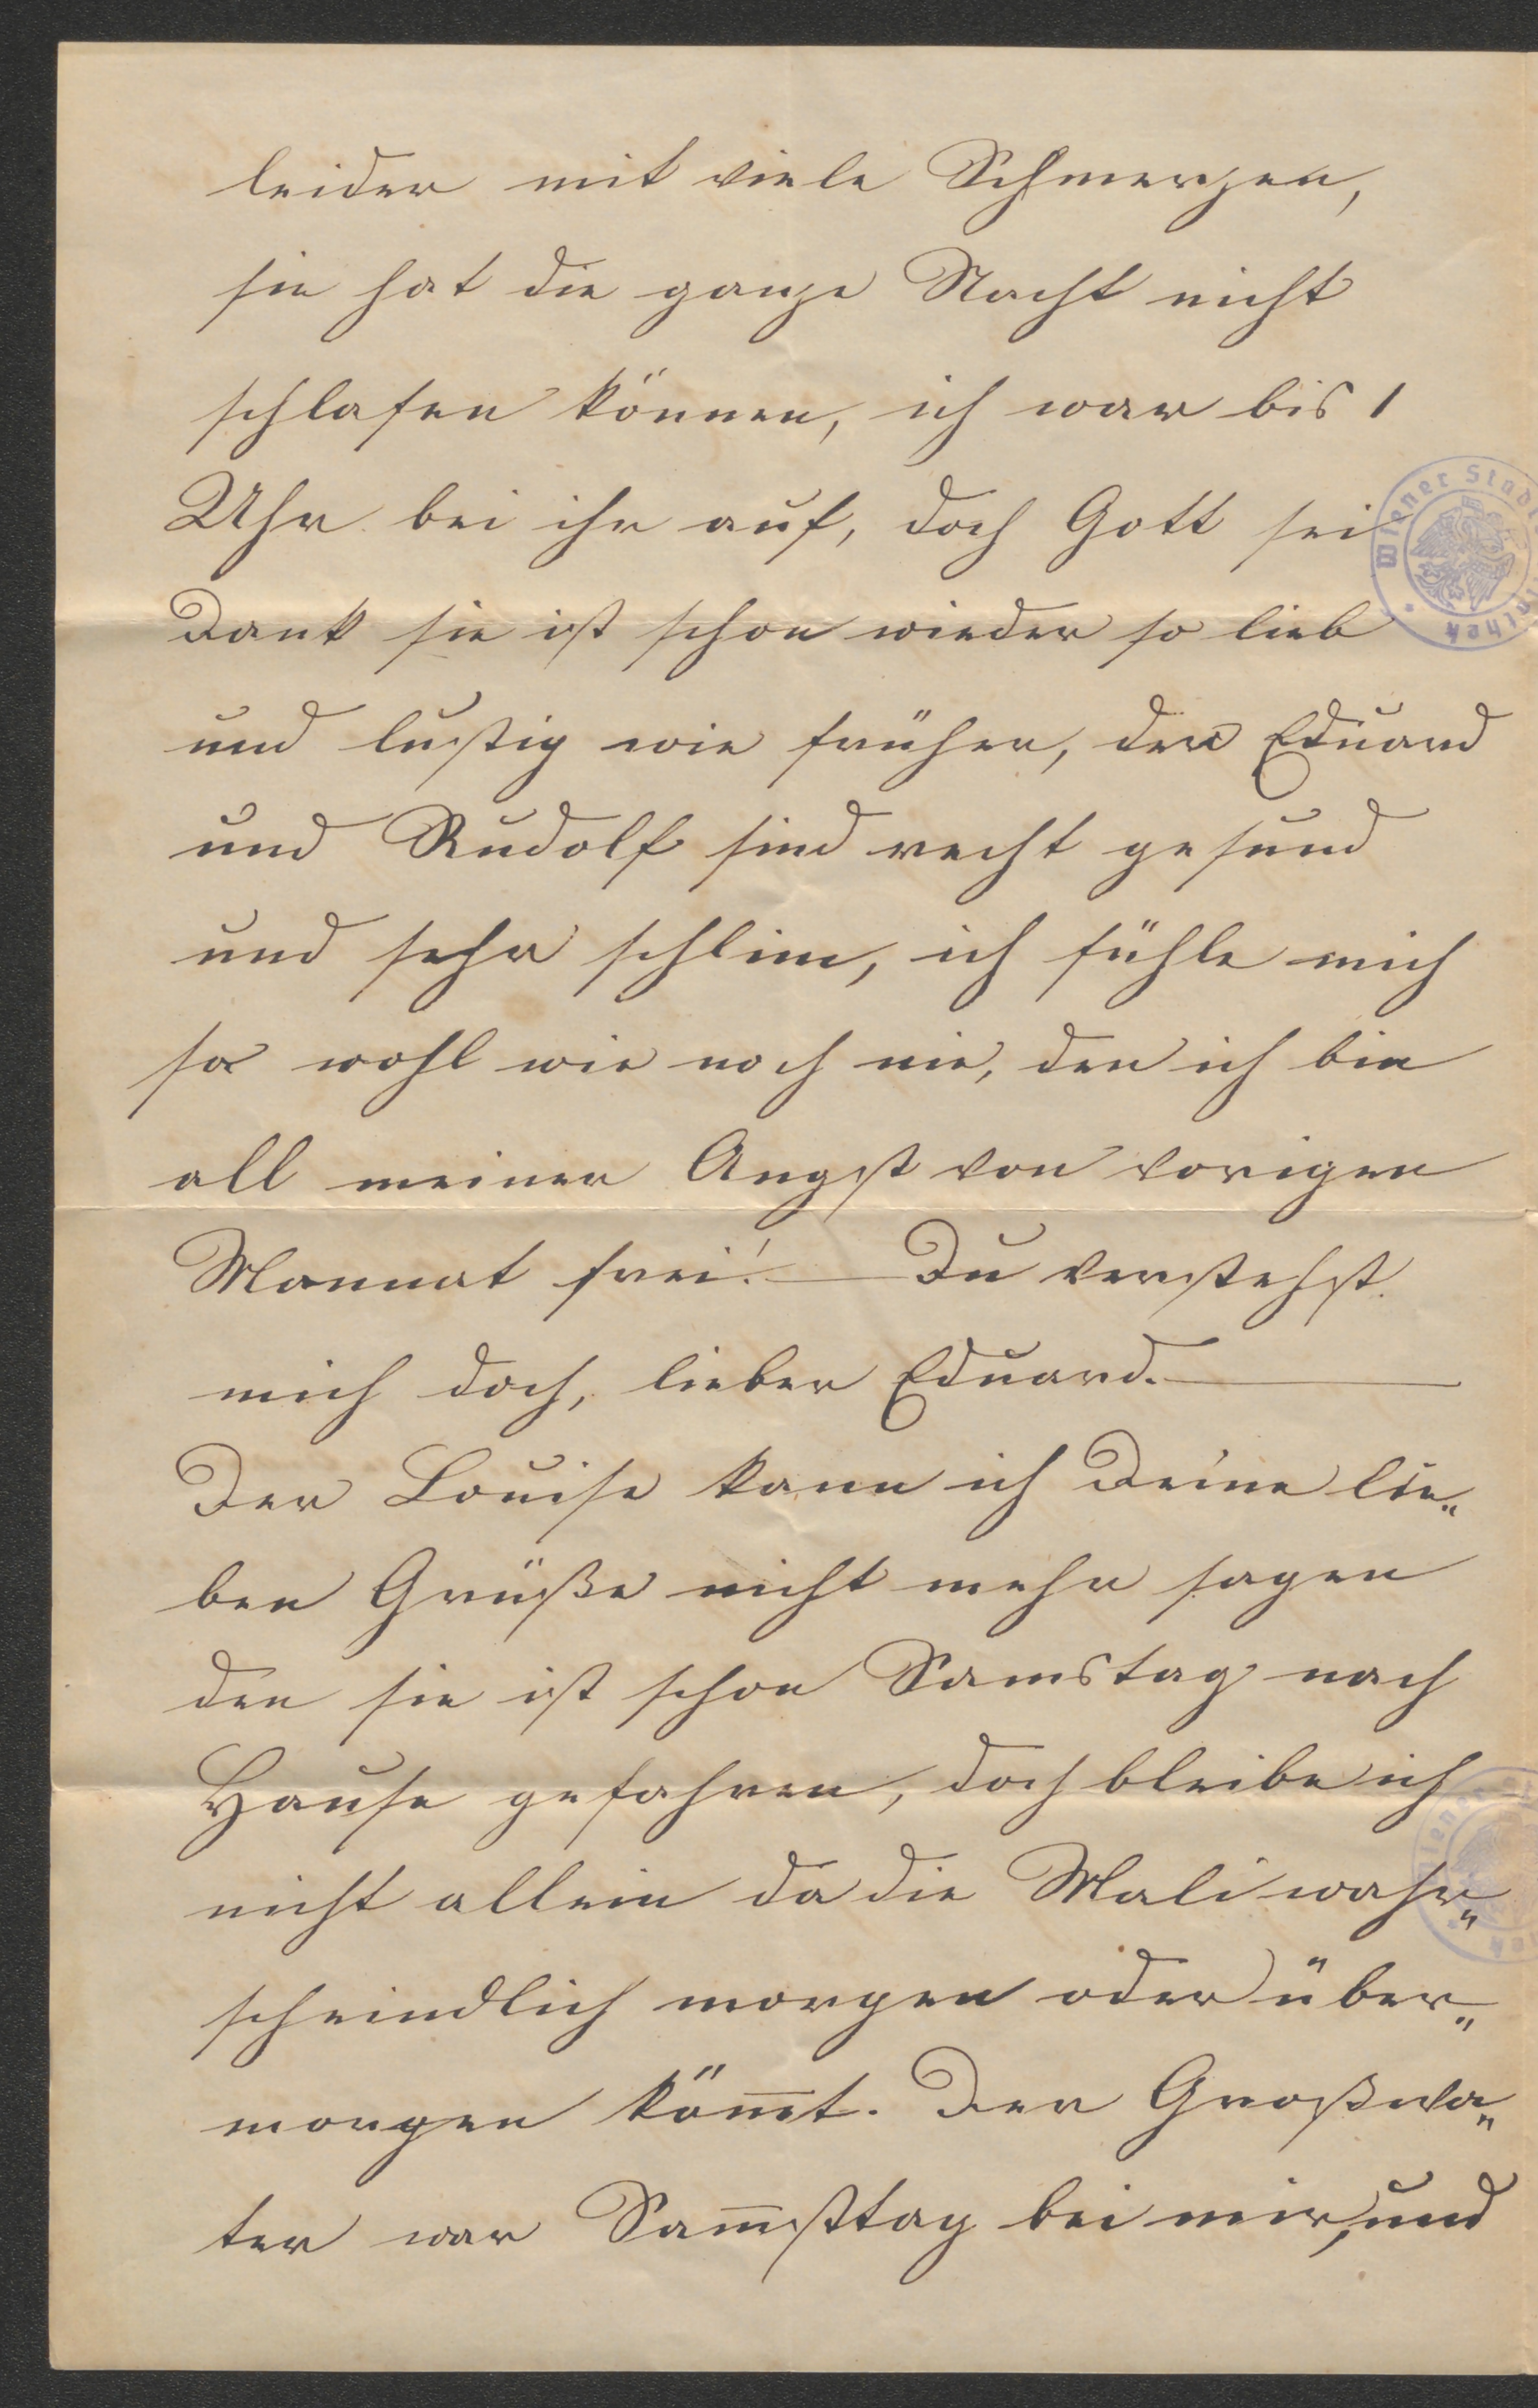 leider mit viele Schmerzen,
sie hat die ganze Nacht nicht
schlafen können, ich war bis 1
Uhr bei ihr auf, doch Gott sei
Dank sie ist schon wieder so lieb
und lustig wie früher, der Eduard
und Rudolf sind recht gesund
und sehr schlim, ich fühle mich
so wohl wie noch nie, den ich bin
all meiner Angst von vorigen
Monnat frei! — Du verstehst
mich doch, lieber Eduard. —
Der Louise kann ich Deine lie„
ben Grüße nicht mehr sagen
den sie ist schon Samstag nach
Hause gefahren, doch bleibe ich
nicht allein da die Mali wahr„
scheindlich morgen oder über„
morgen köm̅t. Der Großva„
ter war Sam̅sttag bei mir, und
Wiener Stad